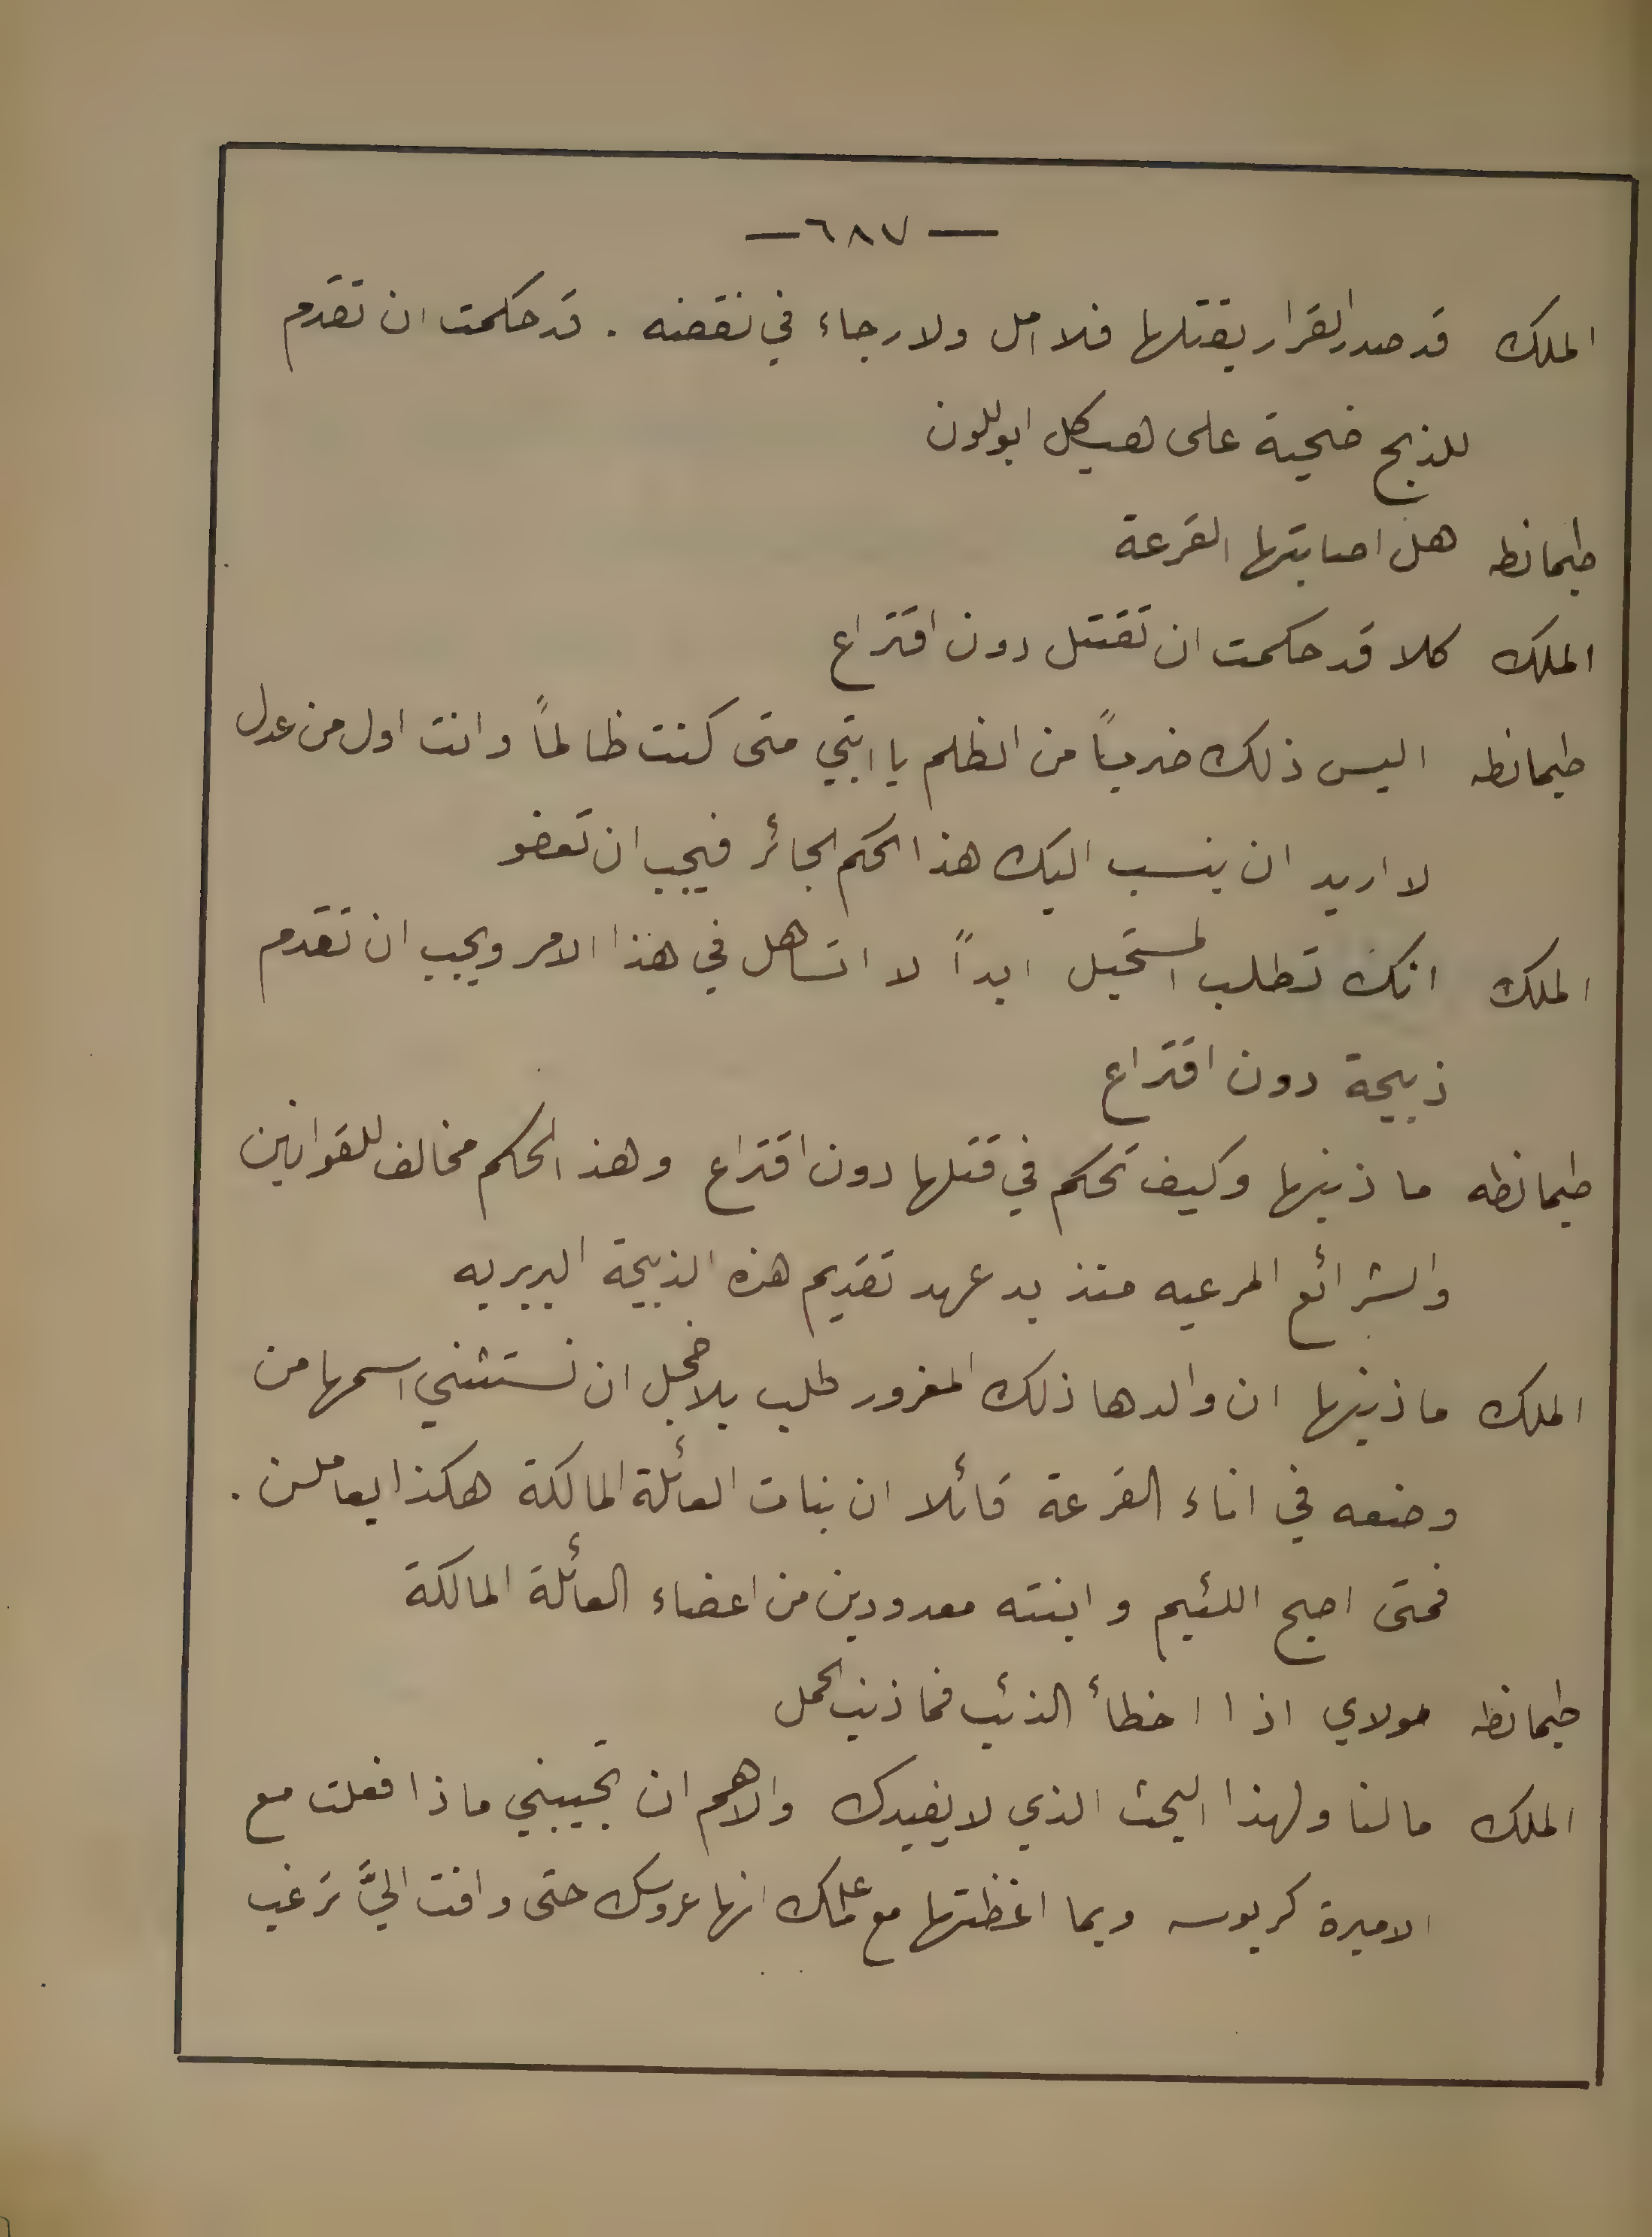 — ٦٨٧ —
الملك قد صدر القرار بقتلها فلا امل ولا رجاء في نقضه . قد حكمت ان تقدم
للذبح ضحية على هيكل ابوللون
طيمانطه هل اصابتها القرعة
الملك كلا قد حكمت ان تقتل دون اقتراع
طيمانطه اليس ذلك ضرباً من الظلم يا ابتي متى كنت ظالماً وانت اول من عدل
لا اريد ان ينسب اليك هذا الحكم الجائر فيجب ان تعفو
الملك انك تطلب المستحيل ابداً لا اتساهل في هذا الامر ويجب ان تقدم
ذبيحة دون اقتراع
طيمانطه ما ذنبها وكيف تحكم في قتلها دون اقتراع وهذا الحكم مخالف للقوانين
والشرائع المرعيه منذ بد عهد تقديم هذه الذبيحة البربريه
الملك ما ذنبها ان والدها ذلك المغرور طلب بلا خجل ان نستثني اسمها من
وضعه في اناء القرعة قائلا ان بنات العائلة المالكة هكذا يعاملن .
فمتى اصبح اللئيم وابنته معدودين من اعضاء العائلة المالكة
طيمانطه مولاي اذا اخطأ الذئب فما ذنب الحمل
الملك مالنا ولهذا البحث الذي لا يفيدك والاهم ان تجيبني ماذا فعلت مع
الاميرة كريوسه وبما اغظتها مع علمك انها عروسك حتى وافت اليَّ ترغب